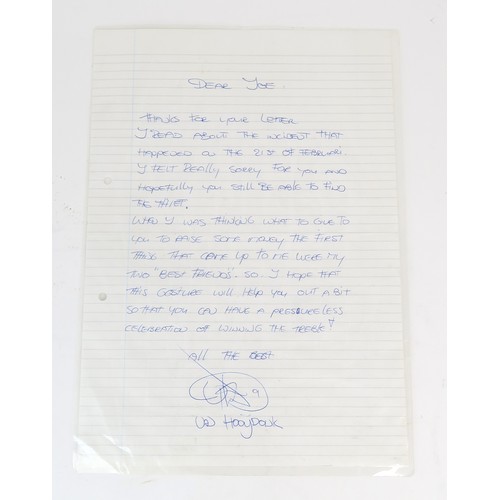 DEAR JOE.
THANKS FOR YOUR LETTER
I READ ABOUT THE INCIDENT THAT
HAPPENED ON THE 21ST OF FEBRUARI.
I FELT REALLY SORRY FOR YOU AND
HOPEFULLY YOU STILL BE ABLE TO FIND
THE THIEF.
WHEN I WAS THINKING WHAT TO GIVE TO
YOU TO RAISE SOME MONEY THE FIRST
THING THAT CAME UP TO ME WERE MY
TWO "BEST FRIENDS". SO I HOPE THAT
THIS GESTURE WILL HELP YOU OUT A BIT
SO THAT YOU CAN HAVE A
CELEBRATION OF WINNING THE TREBLE!
All THE BEST
9
VAN HOOIJDONK